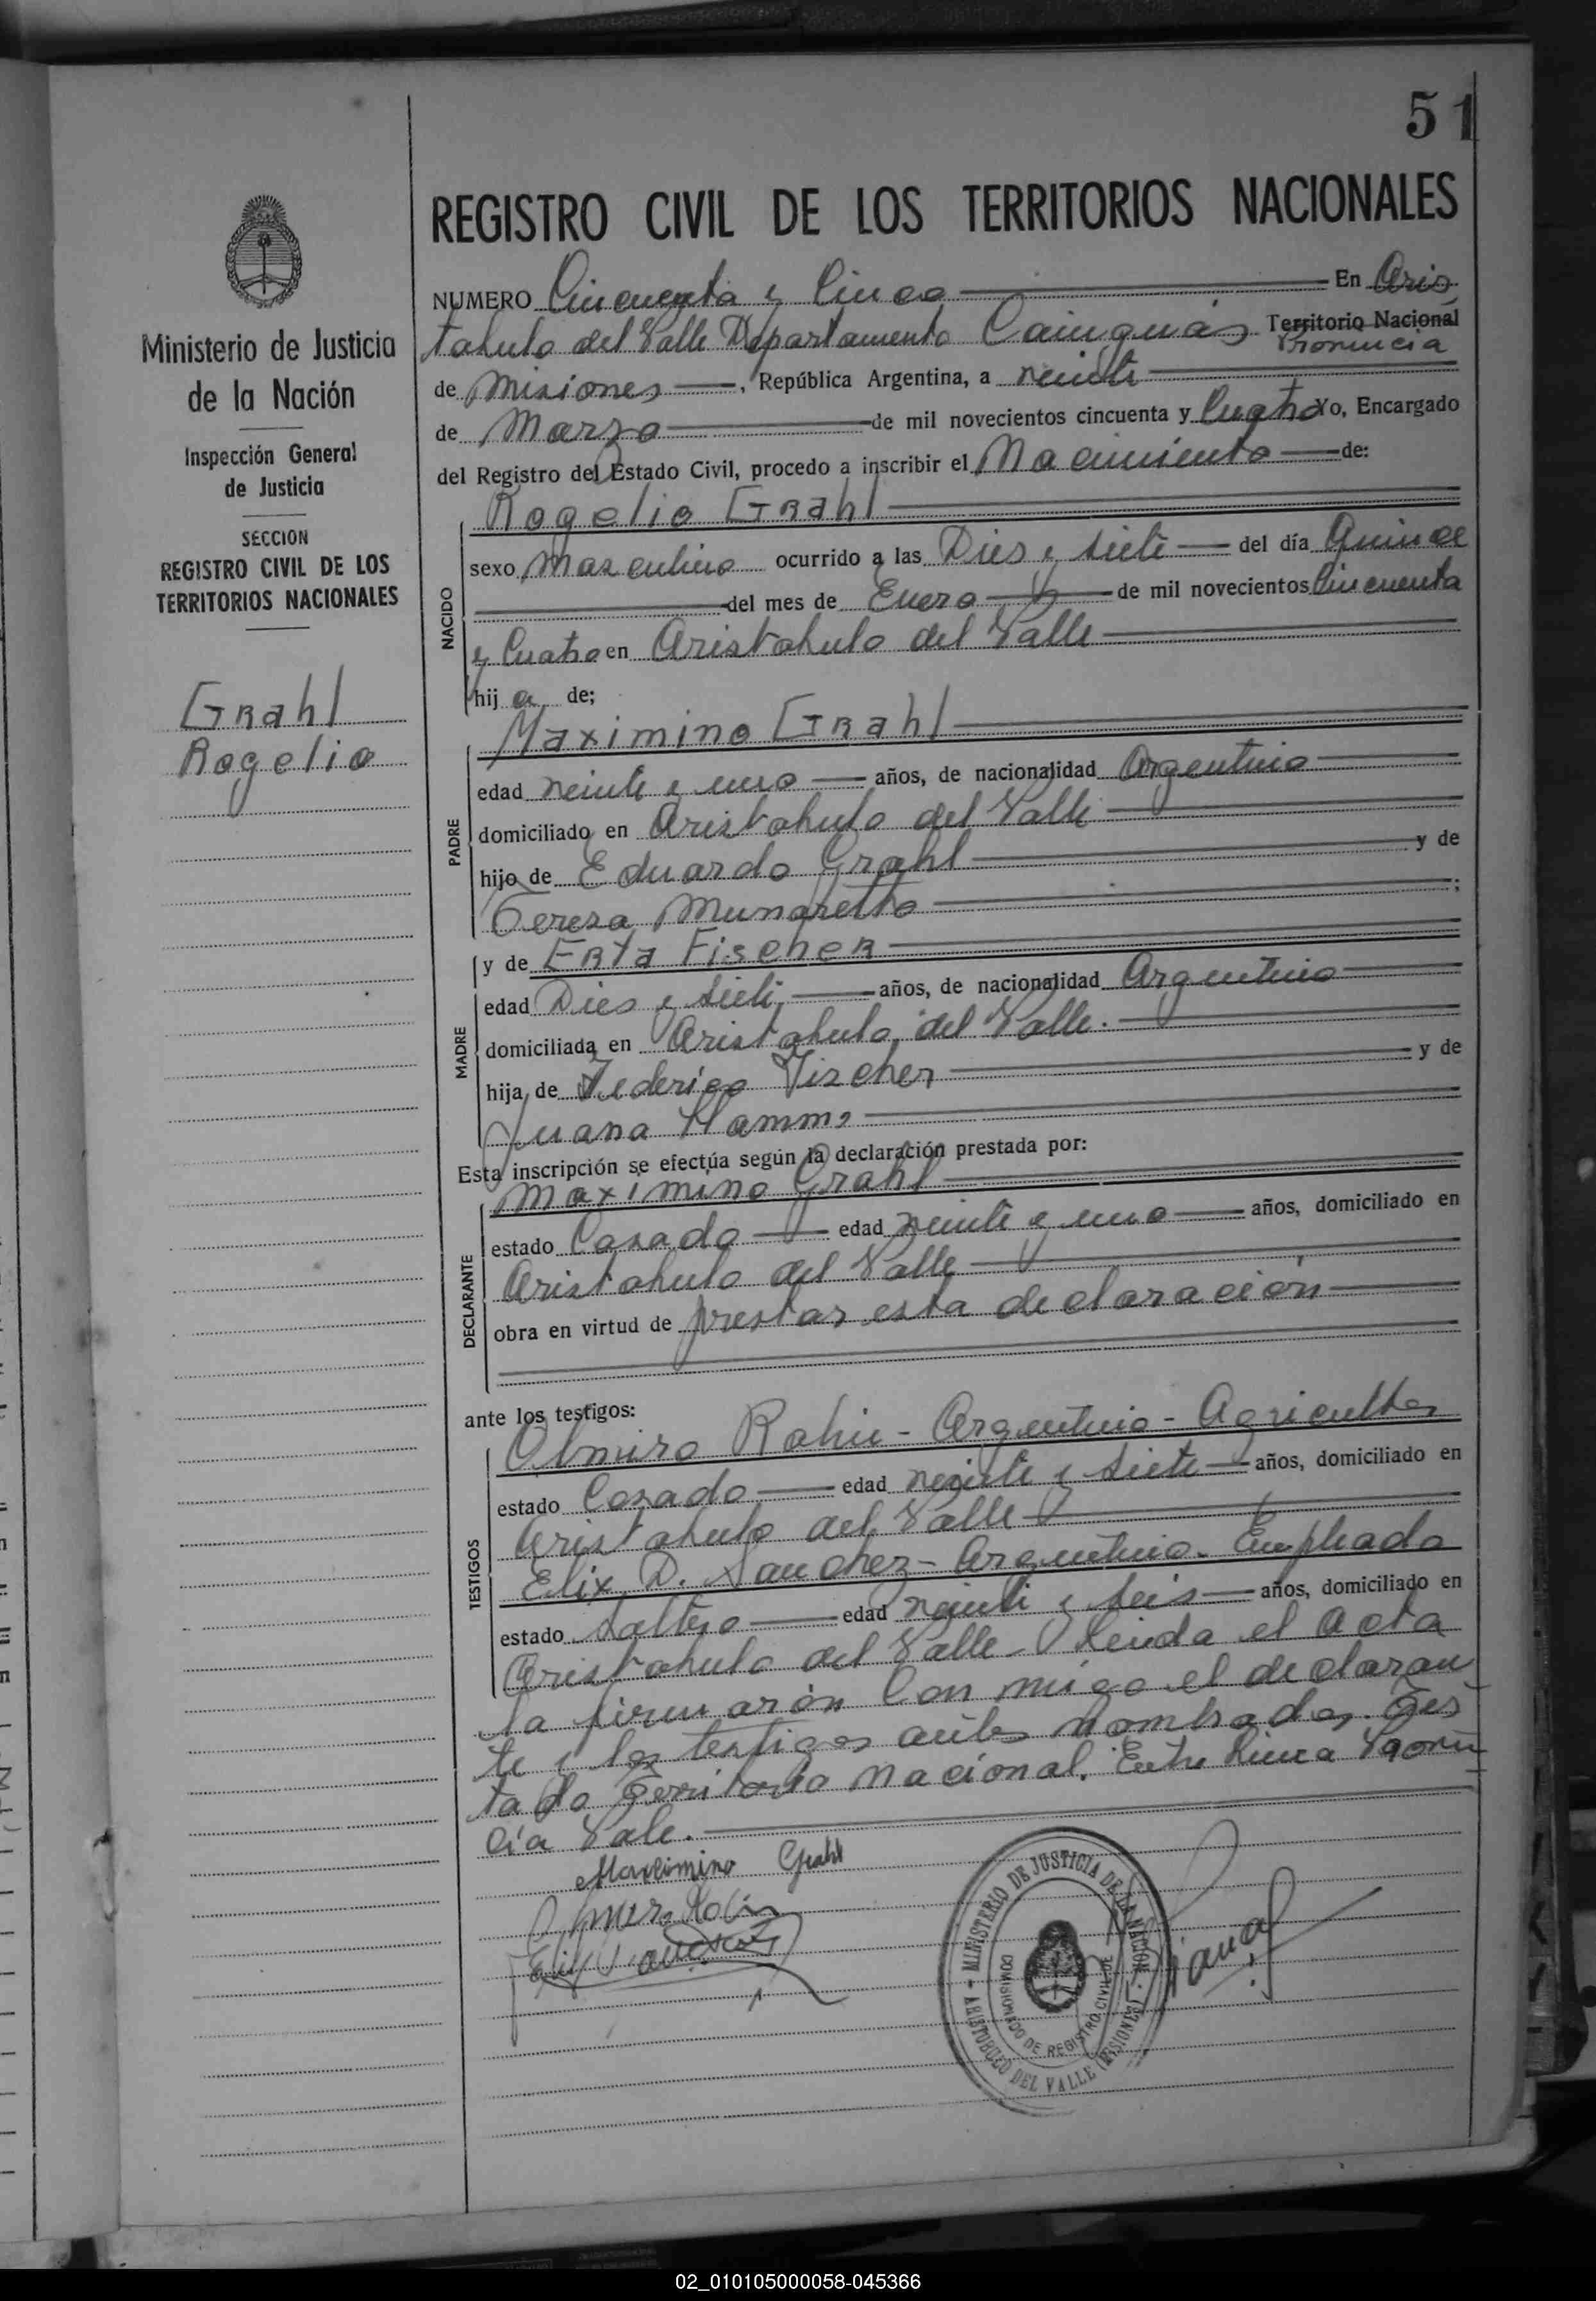 51
REGISTRO CIVIL DE LOS TERRITORIOS NACIONALES
Ministerio de Justicia
de la Nación
Inspección General
de Justicia
SECCION
REGISTRO CIVIL DE LOS
TERRITORIOS NACIONALES
Grahl
Rogelio
NUMERO Cincuenta y Cinco En Aris
tobulo del Valle Departamento Cainguás Territorio Nacional
Provincia
de Misiones, República Argentina, a veinte
de Marzo de mil novecientos cincuenta y Cuatro Yo, Encargado
del Registro del Estado Civil, procedo a inscribir el Nacimiento de:
NACIDO
Rogelio Grahl
sexo Masculino ocurrido a las Dies y siete del día Quince
del mes de Enero de mil novecientos Cincuenta
y Cuatro en Aristobulo del Valle
hij o de;
PADRE
Maximino Grahl
edad veinte y uno años, de nacionalidad Argentino
domiciliado en Aristobulo del Valle
hijo de Eduardo Grahl y de
Teresa Munaretto;
MADRE
y de Erta Fischer
edad Dies y siete años, de nacionalidad Argentino
domiciliada en Aristobulo del Valle.
hija de Federico Fischer y de
Juana Hamm
Esta inscripción se efectúa según la declaración prestada por:
DECLARANTE
Maximino Grahl
estado Casado edad veinte y uno años, domiciliado en
Aristobulo del Valle
obra en virtud de prestar esta declaración
ante los testigos:
TESTIGOS
Olmiro Rohin - Argentino - Agricultor
estado Casado edad veinte y siete años, domiciliado en
Aristobulo del Valle
Elix D. Sanchez - Argentino. Empleado
estado Soltero edad veinte y seis años, domiciliado en
Aristobulo del Valle - Leida el Acta
la firmarón Con migo el declaran
te y los testigos antes nombrados. Tes
tado Territorio Nacional. Entre Linea Provin
cia Vale.
Maximino Grahl
MINISTERIO DE JUSTICIA DE LA NACION
COMISIONADO DE REGISTRO CIVIL DE
ARISTOBULO DEL VALLE (MISIONES)
02_010105000058-045366